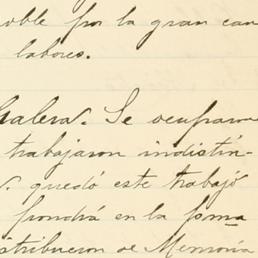 oble por la gran can
labores.
Galera. Se ocuparon
trabajaron indistin-
s. quedó este trabajó
pondrá en la forma
stribucion de Memoria